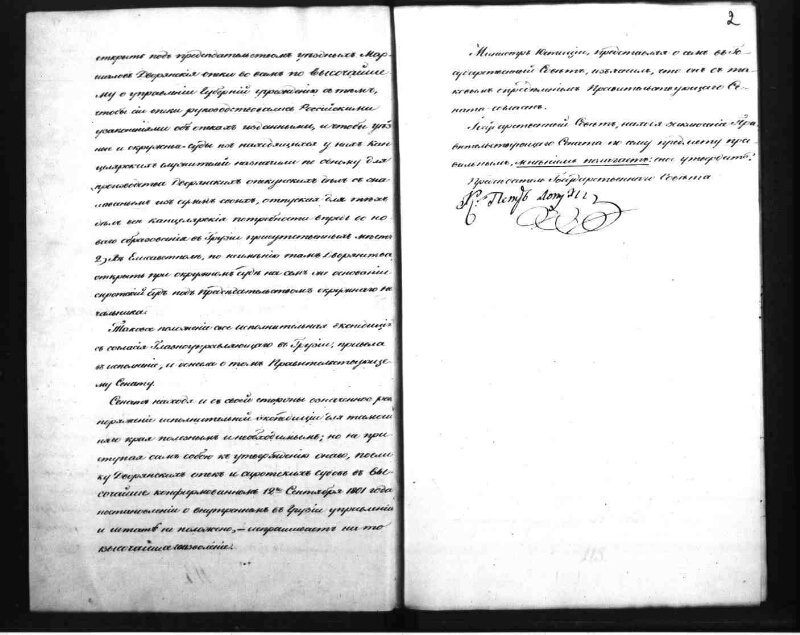 открыть подъ предсѣдательствомъ уѣздныхъ Мар-
шаловъ Дворянскія опеки во всемъ по ВЫСОЧАЙШЕ
му о управленіи Губерній учрежденію съ тѣмъ,
чтобы сіи опеки руководствовались Россійскими
узаконеніями объ опекахъ изданными, и чтобы уѣзд
ные и окружные суды изъ находящихся у нихъ Кан
целярскихъ служителей назначили по одному для
производства Дворянскихъ опекунскихъ дѣлъ съ
жалованьемъ изъ суммъ своихъ, отпуская для тѣхъ
дѣлъ всѣ канцелярскія потребности впредь до но
ваго образованія въ Грузіи присутственныхъ мѣстъ
2) Въ Елисаветполѣ, по неимѣнію тамъ Дворянства,
открыть при окружномъ судѣ на семъ же основаніи
сиротскій судъ подъ Предсѣдательствомъ окружнаго на
чальника.
Таковое положеніе сіе исполнительная экспедиція
съ согласія Главноуправляющаго въ Грузіи, привела
въ исполненіе, и донесла о томъ Правительствующе
му Сенату.
Сенатъ находя и съ своей стороны означенное рас
поряженіе исполнительной экспедиціи для тамош
няго края полезнымъ и необходимымъ; но не при
ступая самъ собою къ утвержденію онаго, поели
ку Дворянскихъ опекъ и сиротскихъ судовъ въ ВЫ-
СОЧАЙШЕ конфирмованномъ 12го Сентября 1801 года
постановленіи о внутреннемъ въ Грузіи управленіи
и штатѣ не положено, – испрашиваетъ на то
ВЫСОЧАЙШАГО соизволенія.
2
Министръ Юстиціи, представляя о семъ въ Го-
сударственный Совѣтъ, изъяснилъ, что онъ съ та-
ковымъ опредѣленіемъ Правительствующаго Се-
ната согласенъ.
Государственный Совѣтъ, находя заключеніе Пра-
вительствующаго Сената по сему предмету пра-
вильнымъ, мнѣніемъ полагаетъ: оное утвердить.
Предсѣдатель Государственнаго Совѣта
Кн. Петръ Лопухинъ